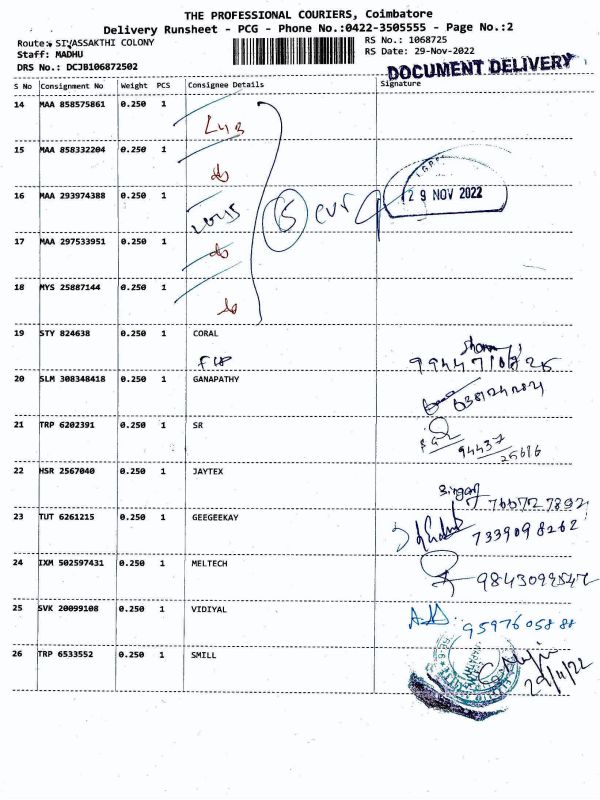 THE PROFESSIONAL COURIERS, Coimbatore
Delivery Runsheet - PCG - Phone No.:0422-3505555 - Page No.:2
Route: SIVASSAKTHI COLONY
RS No.: 1068725
Staff: MADHU
RS Date: 29-Nov-2022
DRS No.: DCJB106872502
DOCUMENT DELIVERY
S No Consignment No Weight PCS Consignee Details Signature
14 MAA 858575861 0.250 1
15 MAA 858332204 0.250 1
do
16 MAA 293974388 0.250 1
29 NOV 2022
15
17 MAA 297533951 0.250 1
do
18 MYS 25887144 0.250 1
do
19 STY 824638 0.250 1 CORAL
20 SLM 308348418 0.250 1 GANAPATHY
21 TRP 6202391 0.250 1 SR
94437
25616
22 HSR 2567040 0.250 1 JAYTEX
23 TUT 6261215 0.250 1 GEEGEEKAY
7339098262
24 IXM 502597431 0.250 1 MELTECH
25 SVK 20099108 0.250 1 VIDIYAL
9597605888
26 TRP 6533552 0.250 1 SMILL
29/11/22